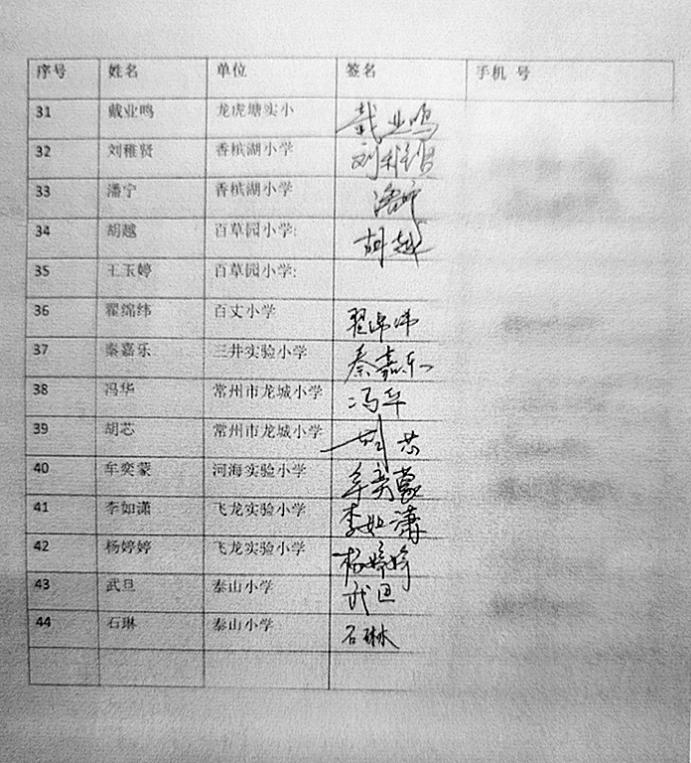 序号 姓名 单位 签名 手机 号
31 戴业鸣 龙虎塘实小 戴业鸣
32 刘稚贤 香槟湖小学 刘稚贤
33 潘宁 香槟湖小学 潘宁
34 胡越 百草园小学: 胡越
35 王玉婷 百草园小学:
36 翟绵纬 百丈小学 翟绵纬
37 秦嘉乐 三井实验小学 秦嘉乐
38 冯华 常州市龙城小学 冯华
39 胡芯 常州市龙城小学 胡芯
40 车奕蒙 河海实验小学 车奕蒙
41 李如潇 飞龙实验小学 李如潇
42 杨婷婷 飞龙实验小学 杨婷婷
43 武旦 泰山小学 武旦
44 石琳 泰山小学 石琳